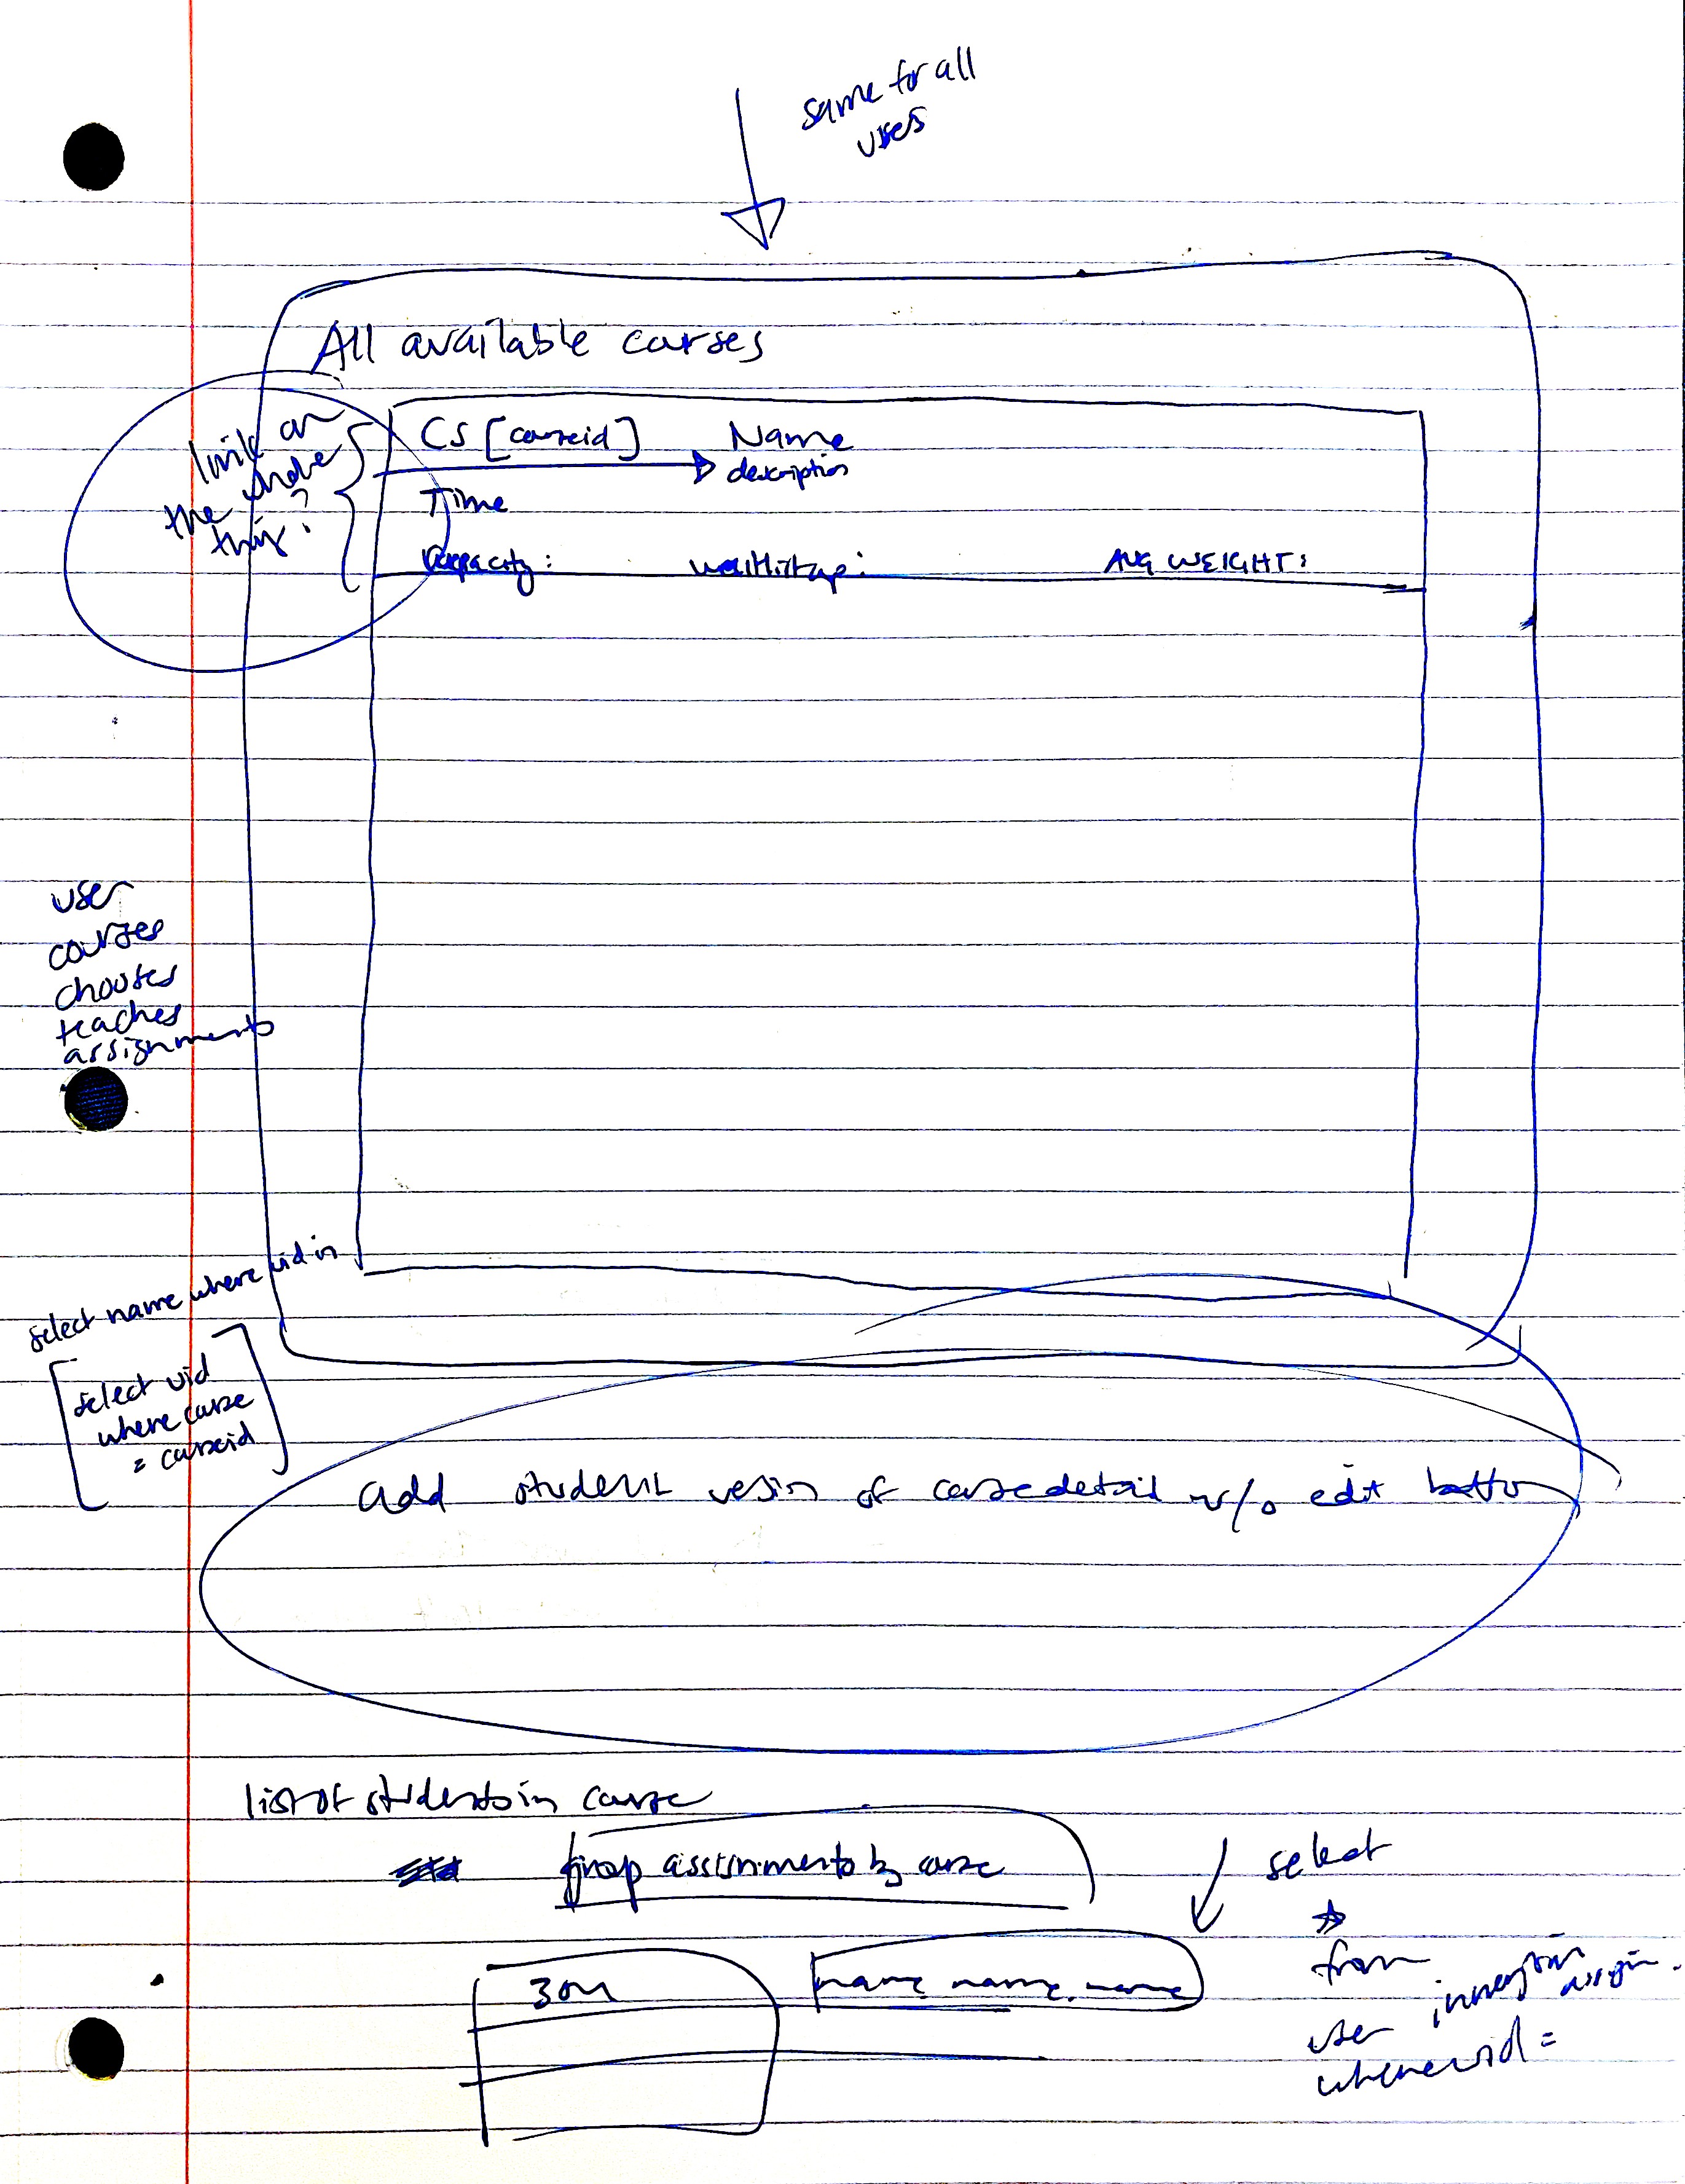 same for all
uses
All available courses
link on
the whole
thing?
CS [courseid] Name
description
Time
Capacity: waitlistcap: AVG WEIGHT:
user
courses
chooses
teaches
assignments
select name where uid in
select uid
where course
= courseid
add student version of coursedetail w/o edit button
list of students in course
group assignments by course
304
name name name
select
*
from
user innerjoin assign.
where uid =